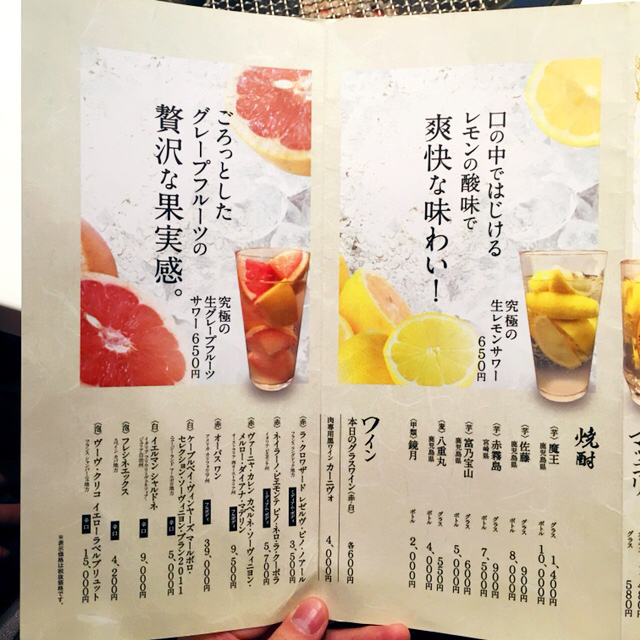 口の中ではじける
レモンの酸味で
爽快な味わい！
究極の
生レモンサワー
650円
ごろっとした
グレープフルーツの
贅沢な果実感。
究極の
生グレープフルーツ
サワー650円
焼酎
(芋) 魔王
鹿児島県
グラス 1,400円
ボトル 10,000円
(芋) 佐藤
鹿児島県
グラス 900円
ボトル 8,000円
(芋) 赤霧島
宮崎県
グラス 900円
ボトル 7,500円
(芋) 富乃宝山
鹿児島県
グラス 600円
ボトル 5,000円
(麦) 八重丸
鹿児島県
グラス 550円
ボトル 4,000円
(甲類) 鏡月
ボトル 2,000円
ワイン
本日のグラスワイン(赤・白) 各600円
肉専用黒ワイン カーニヴォ 4,000円
(赤) ラ・クロワザード レゼルヴ・ピノ・ノアール
3,500円
(赤) ネイラーノ レ モンダ ピノ・ネロ・ラ・クーポラ
5,700円
(赤) ヴァーニャ・カレン カベルネ・ソーヴィニヨン・
メルロー・ダイアナ・マデリン
フルボディ 9,500円
(赤) オーパス ワン
フルボディ 39,000円
(白) ケープルベイ・ヴィンヤーズ マールボロ・
セレクション・ソーヴィニヨン・ブラン2011
辛口 5,000円
(白) イエルマン シャルドネ
辛口 9,000円
(泡) フレシネエックス
辛口 4,200円
(泡) ヴーヴ・クリコ イエローラベルブリュット
フランス シャンパーニュ地方
辛口 15,000円
※表示価格は税抜価格です。
グラス 580円